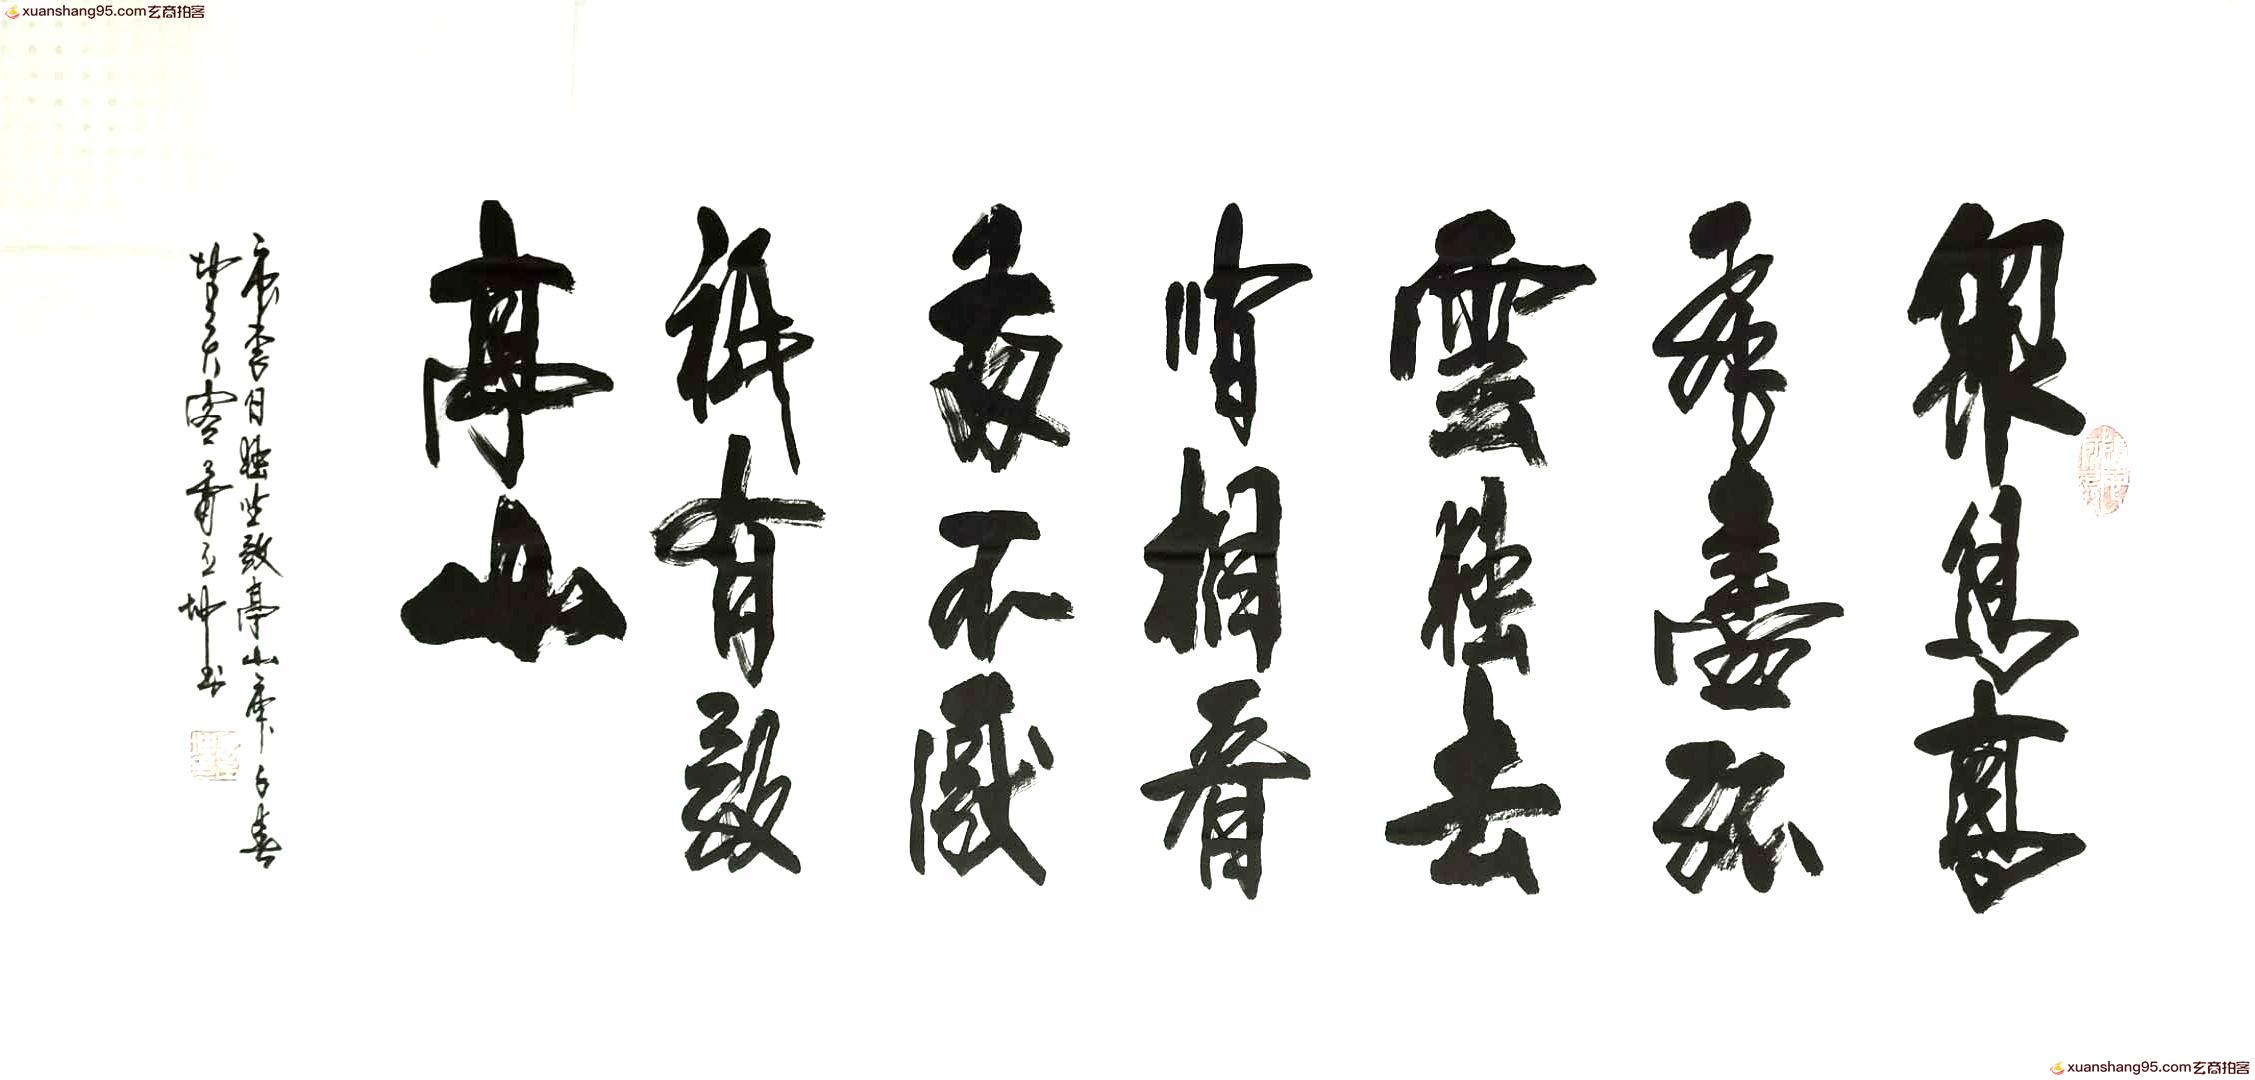 xuanshang95.com玄商拍客
眾鳥高
飛盡孤
雲獨去
閒相看
兩不厭
祇有敬
亭山
唐李白獨坐敬亭山庚子春
坤书
xuanshang95.com玄商拍客